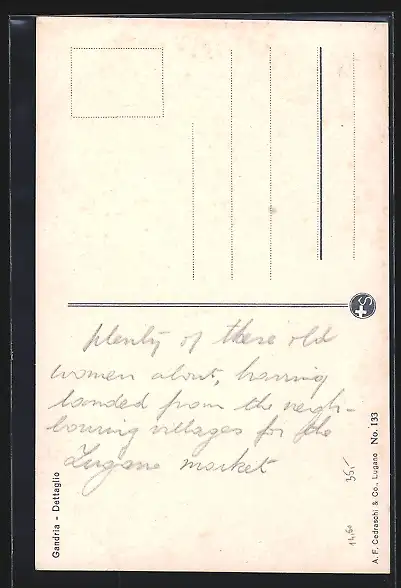 plenty of these old
women about, having
landed from the neigh-
bouring villages for the
Lugano market
Gandria - Dettaglio
A. F. Cedraschi & Co., Lugano No. 133
35,-
S